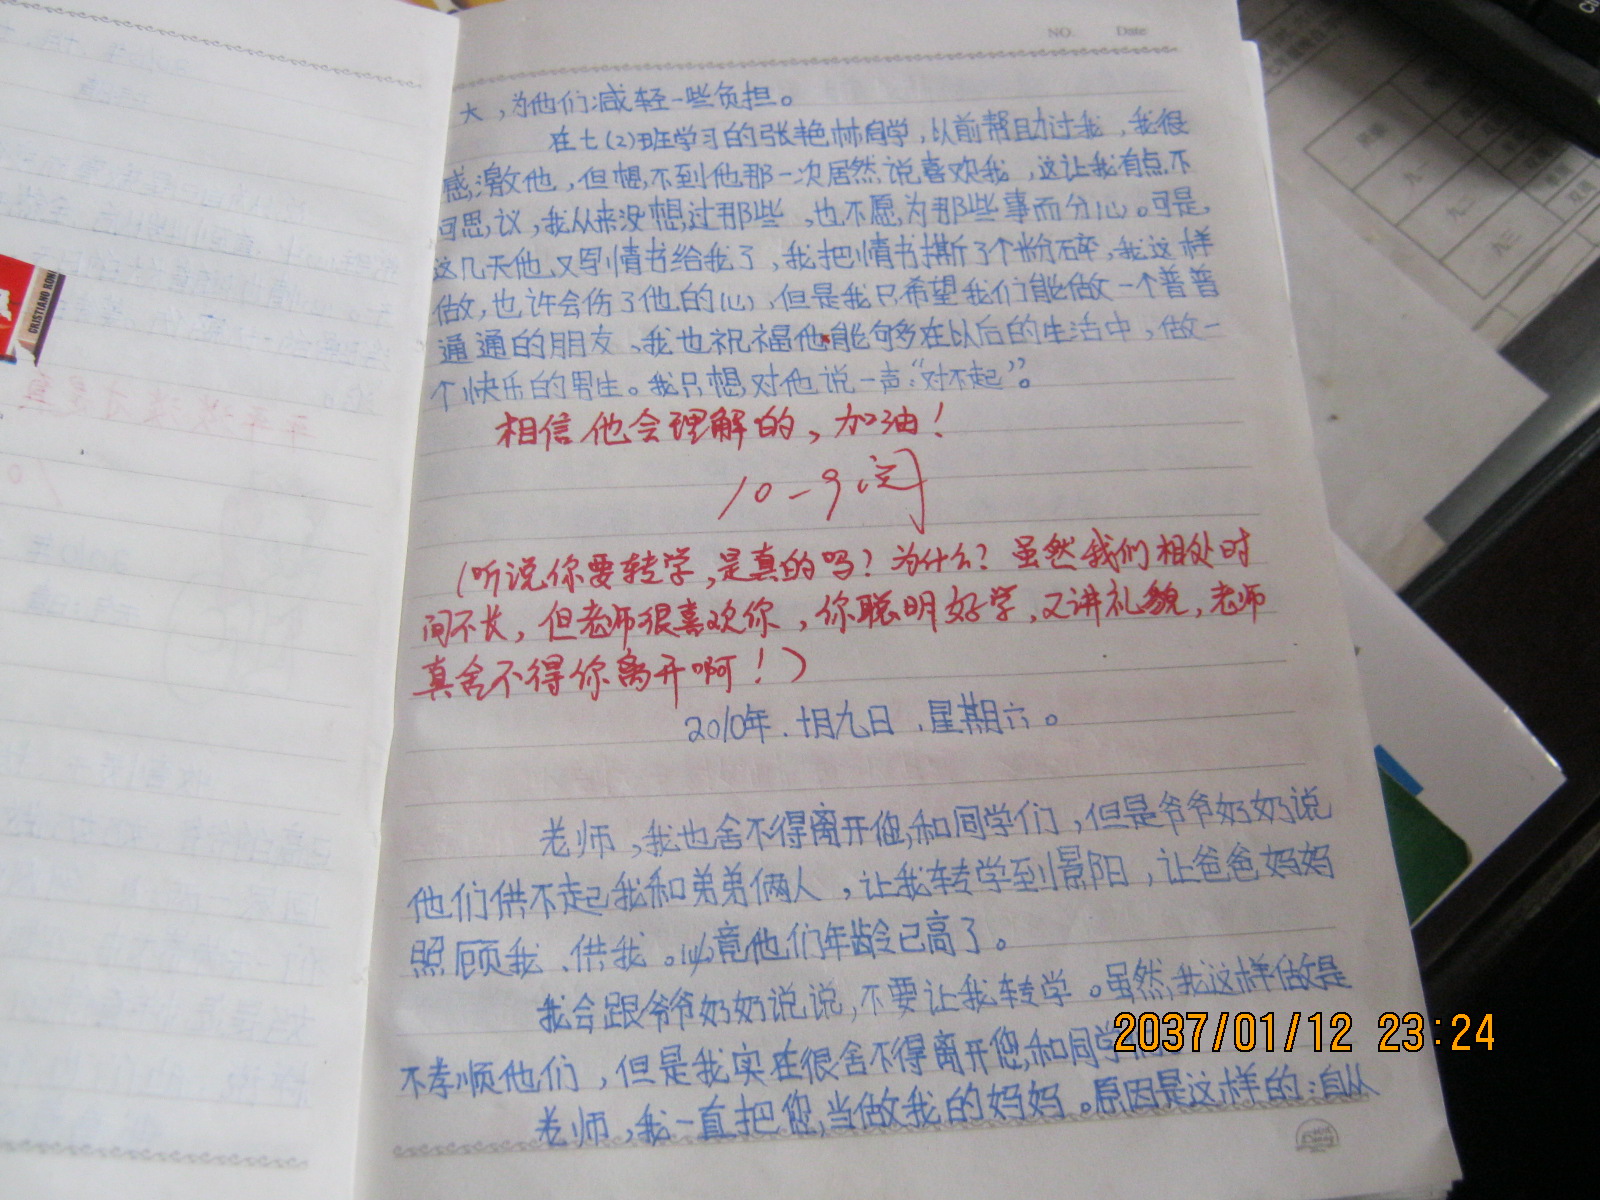 NO. Date
大，为他们减轻一些负担。
在七(2)班学习的张艳林自学，以前帮助过我，我很
感激他，但想不到他那一次居然说喜欢我，这让我有点不
可思议，我从来没想过那些，也不愿为那些事而分心。可是，
这几天他又写情书给我了，我把情书撕了个粉碎，我这样
做，也许会伤了他的心，但是我只希望我们能做一个普普
通通的朋友、我也祝福他能够多在以后的生活中，做一
个快乐的男生。我只想对他说一声“对不起”。
相信他会理解的，加油！
10-9
(听说你要转学，是真的吗？为什么？虽然我们相处时
间不长，但老师很喜欢你，你聪明好学，又讲礼貌，老师
真舍不得你离开啊！)
2010年、十月九日、星期六。
老师，我也舍不得离开您，和同学们，但是爷爷奶奶说
他们供不起我和弟弟俩人，让我转学到景阳，让爸爸妈妈
照顾我、供我。必竟他们年龄已高了。
我会跟爷爷奶奶说说，不要让我转学。虽然，我这样做是
不孝顺他们，但是我实在很舍不得离开您，和同学
老师，我一直把您，当做我的妈妈。原因是这样的：自从
CRISTIANO RON
九一
九二
九三
2037/01/12 23:24